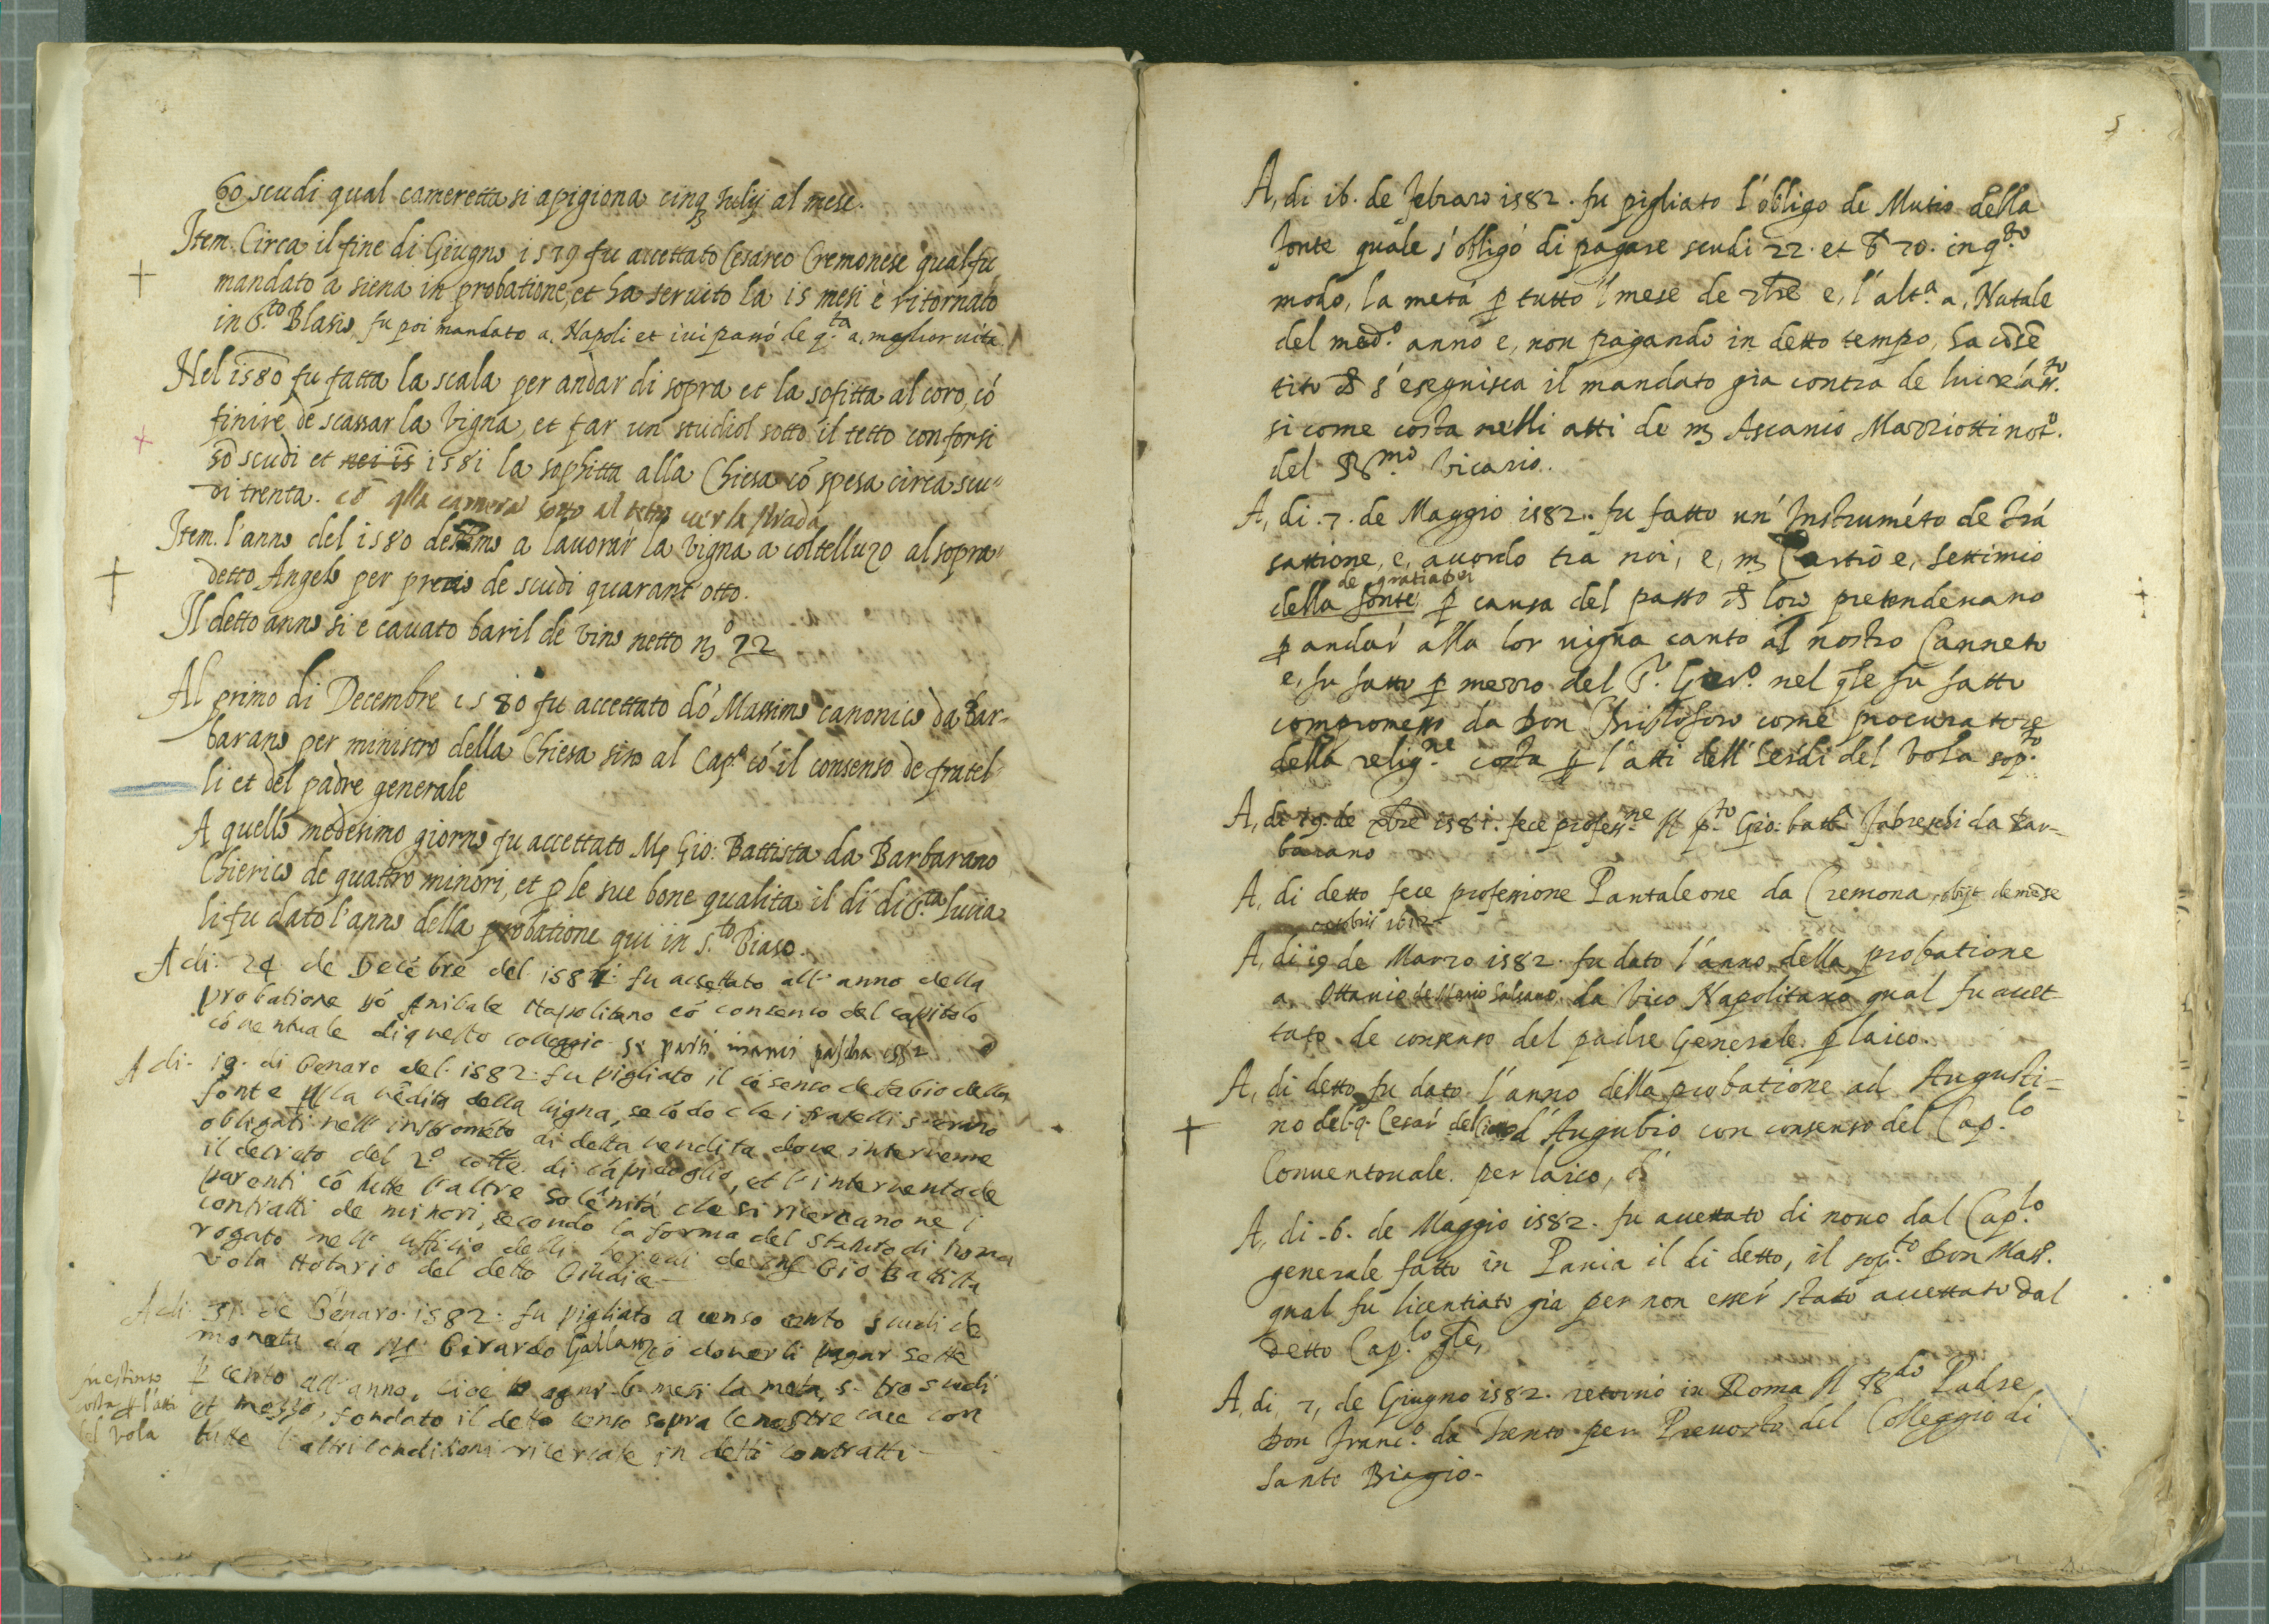 60 scudi qual cameretta si apigiona cinq3 Iulij al mese.
Item. Circa il fine di Giugno 1579 fu accettato Cesareo Cremonese qual fu
mandato a siena in probatione, et ha servito la 15 mesi è ritornato
in S.to Blasio fu poi mandato a, Napoli et ivi passó de q.ta a, meglior vita
Nel 1580 fu fatta la scala per andar di sopra et la sofitta al coro, có
finire de scassar la vigna, et far un studiol sotto il tetto con forsi
50 scudi et nei 15 1581 la sophitta alla Chiesa có spesa circa scu=
di trenta. có qlla camera sotto al tetto ver la strada
Item. l'anno del 1580 dessimo a lavorar la vigna a coltelluzo al sopra=
detto Angelo per precio de scudi quarant'otto.
Il detto anno si e cavato baril de vino netto n3o 72
Al primo di Decembre 1580 fu accettato dó Massimo canonico da Bar-
barano per ministro della Chiesa sino al Cap.o có il consenso de fratel-
li et del padre generale
A quello medesimo giorno fu accettato M3 Gio: Battista da Barbarano
Chierico de quattro minori, et p le sue bone qualita il dí di S.ta Lucia
li fu dato l'anno della probatione qui in s.to Biaso.
A di. 24 de Decébre del 1581. fu accettato all' anno della
probatione dó Anibale Napolitano có consenso del capitolo
cóventuale di questo colleggio se partí pascha 1582
A di. 19. di Genaro del. 1582. fu pigliato il cósenso de fabio della
fonte p la védita della vigna, secódo che i fratelli s'erano
obligati nell' instrométo di detta vendita dove intervenne
il decreto del 2.o colle. di cápidoglio, et l'intervento de
parenti có tutte l'altre solénitá che si ricercano ne i
contratti de minori, secondo la forma del statuto di Roma
rogato nell' officio delli heredi de Gio Battista
vola Notario del detto Giudice-
A di. 31. de Génaro. 1582. fu pigliato a censo cento scudi de
moneta da M.r Girardo Gallarzo có doverli pagar sette
p cento all'anno, cioe ogni. 6. mesi la meta, s. tre scudi
et mezzo, fondato il detto censo sopra le nostre case con
tutte l'altri conditioni ricercate in detti contratti-
fu estinto
costa p l'atti
del vola
5
A, di 16. de febraro 1582. fu pigliato l'obligo de Mutio della
fonte quale s'obligó di pagare scudi 22. et 70. in q.sto
modo, la metá p tutto 'l mese de e, l'alt.a a, Natale
del med.o anno e, non pagando in detto tempo, ha cóse
tito s'eseguisca il mandato gia contra de lui
si come costa nelli atti de m3 Ascanio Mazziotti not.o
del R.mo Vicario.
A, di. 7. de Maggio 1582. fu fatto un' Instruméto de trá
sattione, e, acordo tra noi, e, m3 Curtio e, settimio
de gratia dei
della fonte, p causa del passo loro pretendevano
p andar alla lor vigna canto al nostro Canneto
e, fu fatto p mezzo del P. nel qle fu fatto
compromesso da Don Christoforo come procuratore
della relig.ne costa p l'atti dell' heredi del Vola sop.to
A, di 19. de 1581. fece profess.ne Il p.to Gio: batt.a da Bar-
barano
A, di detto fece professione Pantaleone da Cremona, obijt de mése
octobris 1612
A, di 19 de Marzo 1582. fu dato l'anno della probatione
a, Ottavio da Vico Napolitano qual fu accet-
tato de consenso del padre Generale. p laico.
A, di detto fu dato l'anno della probatione ad Augusti=
no del. q. Cesar d'Augubio con consenso del Cap.lo
Conventuale. per laico,
A, di. 6. de Maggio 1582. fu accettato di novo dal Cap.lo
generale fatto in Pavia il di detto, il sop.to Don Mass.
qual fu licentiato gia per non esser stato accettato dal
detto Cap.lo gle,
A, di, 7, de Giugno 1582. retornó in Roma Il R.do Padre
Don Franc.o da Trento per Prevosto del Colleggio di
Santo Biagio.